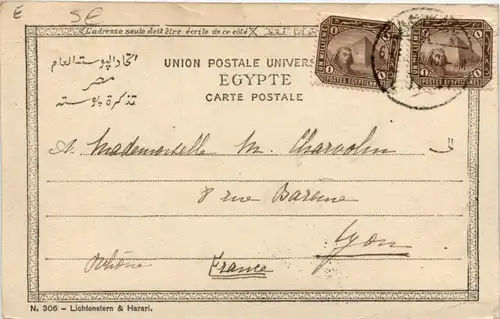 E 5E
L'adresse seule doit être écrite de ce côté
اتحاد البوسته العام
مصر
تذكرة بوسته
UNION POSTALE UNIVERS
EGYPTE
CARTE POSTALE
POSTES EGYPTIENNES
POSTES EGYPTIENNES
Mademoiselle M. Charvolin
8 rue Barême
Lyon
Rhône France
N. 306 – Lichtenstern & Harari.